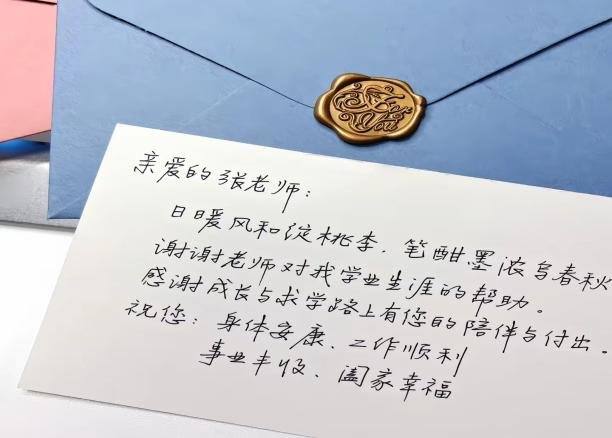 For You
亲爱的张老师：
日暖风和绽桃李．笔酣墨浓写春秋
谢谢老师对我学业生涯的帮助。
感谢成长与求学路上有您的陪伴与付出．
祝您：身体安康、工作顺利
事业丰收、阖家幸福